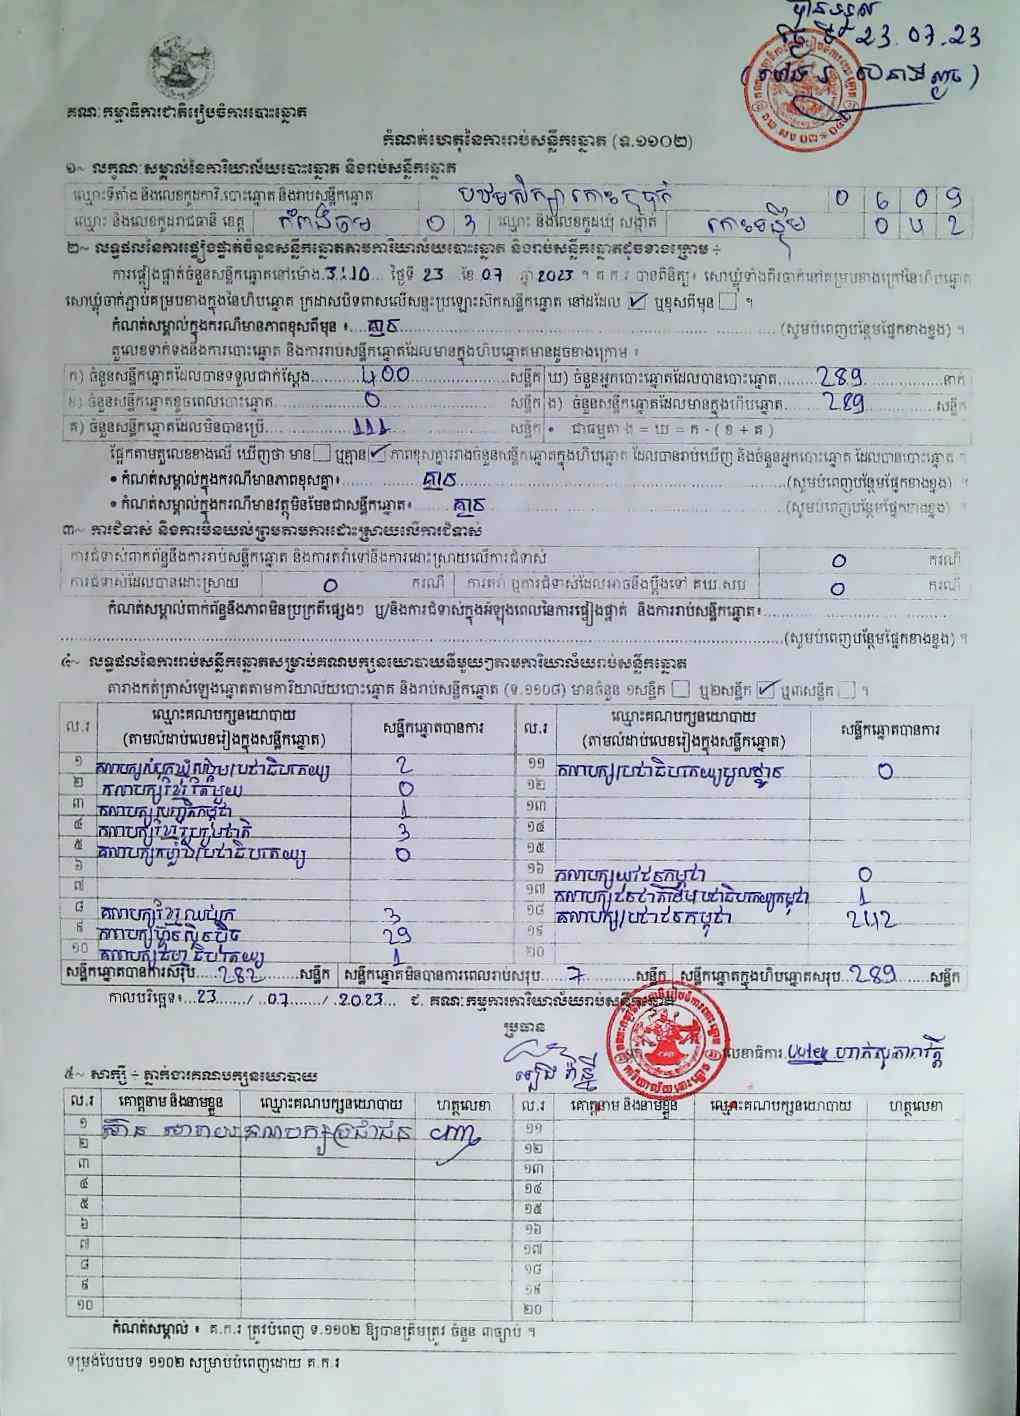 បានទទួល
ថ្ងៃទី 23.07.23
គណៈកម្មាធិការជាតិរៀបចំការបោះឆ្នោត
កំណត់ហេតុនៃការរាប់សន្លឹកឆ្នោត (ទ.១១០២)
១~ លក្ខណៈសម្គាល់នៃការិយាល័យបោះឆ្នោត និងរាប់សន្លឹកឆ្នោត
ឈ្មោះទីតាំង និងលេខកូដការិ.បោះឆ្នោត និងរាប់សន្លឹកឆ្នោត បឋមសិក្សា 0 6 0 9
ឈ្មោះ និងលេខកូដរាជធានី ខេត្ត កំពង់ចាម 0 3 ឈ្មោះ និងលេខកូដឃុំ សង្កាត់ 0 4 2
២~ លទ្ធផលនៃការផ្ទៀងផ្ទាត់ចំនួនសន្លឹកឆ្នោតតាមការិយាល័យបោះឆ្នោត និងរាប់សន្លឹកឆ្នោតដូចខាងក្រោម ÷
ការផ្ទៀងផ្ទាត់ចំនួនសន្លឹកឆ្នោតនៅម៉ោង 3:10 ថ្ងៃទី 23 ខែ 07 ឆ្នាំ 2023 ។ គ.ក.រ បានពិនិត្យ៖ សោឃ្លុំទាំងពីរចាក់នៅគម្របខាងក្រៅនៃហិបឆ្នោត
សោឃ្លុំចាក់ភ្ជាប់គម្របខាងក្នុងនៃហិបឆ្នោត ក្រដាសបិទពាសលើសន្ទះប្រឡោះសៀតសន្លឹកឆ្នោត នៅដដែល ☑ ឬខុសពីមុន ☐ ។
កំណត់សម្គាល់ក្នុងករណីមានភាពខុសពីមុន ៖ គ្មាន (សូមបំពេញបន្ថែមផ្នែកខាងខ្នង) ។
តួលេខទាក់ទងនឹងការបោះឆ្នោត និងការរាប់សន្លឹកឆ្នោតដែលមានក្នុងហិបឆ្នោតមានដូចខាងក្រោម ៖
ក) ចំនួនសន្លឹកឆ្នោតដែលបានទទួលជាក់ស្តែង 400 សន្លឹក ឃ) ចំនួនអ្នកបោះឆ្នោតដែលបានបោះឆ្នោត 289 នាក់
ខ) ចំនួនសន្លឹកឆ្នោតខូចពេលបោះឆ្នោត 0 សន្លឹក ង) ចំនួនសន្លឹកឆ្នោតដែលមានក្នុងហិបឆ្នោត 289 សន្លឹក
គ) ចំនួនសន្លឹកឆ្នោតដែលមិនបានប្រើ 111 សន្លឹក • ជាធម្មតា ង = ឃ = ក - ( ខ + គ )
ផ្អែកតាមតួលេខខាងលើ ឃើញថា មាន ☐ ឬគ្មាន ☑ ភាពខុសគ្នារវាងចំនួនសន្លឹកឆ្នោតក្នុងហិបឆ្នោត ដែលបានរាប់ឃើញ និងចំនួនអ្នកបោះឆ្នោត ដែលបានបោះឆ្នោត ។
• កំណត់សម្គាល់ក្នុងករណីមានភាពខុសគ្នា៖ គ្មាន (សូមបំពេញបន្ថែមផ្នែកខាងខ្នង) ។
• កំណត់សម្គាល់ក្នុងករណីមានវត្ថុមិនមែនជាសន្លឹកឆ្នោត៖ គ្មាន (សូមបំពេញបន្ថែមផ្នែកខាងខ្នង) ។
៣~ ការជំទាស់ និងការមិនយល់ព្រមតាមការដោះស្រាយលើការជំទាស់
ការជំទាស់ពាក់ព័ន្ធនឹងការរាប់សន្លឹកឆ្នោត និងការតវ៉ាទៅនឹងការដោះស្រាយលើការជំទាស់ 0 ករណី
ការជំទាស់ដែលបានដោះស្រាយ 0 ករណី ការតវ៉ា ឬការជំទាស់ដែលអាចនឹងប្តឹងទៅ គឃ.សប 0 ករណី
កំណត់សម្គាល់ពាក់ព័ន្ធនឹងភាពមិនប្រក្រតីផ្សេងៗ ឬ/និងការជំទាស់ក្នុងអំឡុងពេលនៃការផ្ទៀងផ្ទាត់ និងការរាប់សន្លឹកឆ្នោត៖
(សូមបំពេញបន្ថែមផ្នែកខាងខ្នង) ។
៤~ លទ្ធផលនៃការរាប់សន្លឹកឆ្នោតសម្រាប់គណបក្សនយោបាយនីមួយៗតាមការិយាល័យរាប់សន្លឹកឆ្នោត
តារាងកត់ត្រាសំឡេងឆ្នោតតាមការិយាល័យបោះឆ្នោត និងរាប់សន្លឹកឆ្នោត (ទ.១១០៨) មានចំនួន ១សន្លឹក ☐ ឬ២សន្លឹក ☑ ឬ៣សន្លឹក ☐ ។
ល.រ ឈ្មោះគណបក្សនយោបាយ (តាមលំដាប់លេខរៀងក្នុងសន្លឹកឆ្នោត) សន្លឹកឆ្នោតបានការ ល.រ ឈ្មោះគណបក្សនយោបាយ (តាមលំដាប់លេខរៀងក្នុងសន្លឹកឆ្នោត) សន្លឹកឆ្នោតបានការ
១ គណបក្សសំបុកឃ្មុំសង្គមប្រជាធិបតេយ្យ 2 ១១ គណបក្សប្រជាធិបតេយ្យមូលដ្ឋាន 0
២ គណបក្សខ្មែរតែមួយ 0 ១២
៣ គណបក្សបញ្ញាតិកម្ពុជា 1 ១៣
៤ គណបក្សខ្មែររួបរួមជាតិ 3 ១៤
៥ គណបក្សកម្លាំងប្រជាធិបតេយ្យ 0 ១៥
៦ ១៦ គណបក្សយុវជនកម្ពុជា 0
៧ ១៧ គណបក្សជនជាតិដើមប្រជាធិបតេយ្យកម្ពុជា 1
៨ គណបក្សខ្មែរឈប់ក្រ 3 ១៨ គណបក្សប្រជាជនកម្ពុជា 242
៩ គណបក្សហ៊្វុនស៊ិនប៉ិច 29 ១៩
១០ គណបក្សធម្មាធិបតេយ្យ 1 ២០
សន្លឹកឆ្នោតបានការសរុប 282 សន្លឹក សន្លឹកឆ្នោតមិនបានការពេលរាប់សរុប 7 សន្លឹក សន្លឹកឆ្នោតក្នុងហិបឆ្នោតសរុប 289 សន្លឹក
កាលបរិច្ឆេទ៖ 23 / 07 / 2023 ជ. គណៈកម្មការការិយាល័យរាប់សន្លឹកឆ្នោត
ប្រធាន
លេខាធិការ
៥~ សាក្សី ÷ ភ្នាក់ងារគណបក្សនយោបាយ
ល.រ គោត្តនាម និងនាមខ្លួន ឈ្មោះគណបក្សនយោបាយ ហត្ថលេខា ល.រ គោត្តនាម និងនាមខ្លួន ឈ្មោះគណបក្សនយោបាយ ហត្ថលេខា
១ គណបក្សប្រជាជន ១១
២ ១២
៣ ១៣
៤ ១៤
៥ ១៥
៦ ១៦
៧ ១៧
៨ ១៨
៩ ១៩
១០ ២០
កំណត់សម្គាល់ ៖ គ.ក.រ ត្រូវបំពេញ ទ.១១០២ ឱ្យបានត្រឹមត្រូវ ចំនួន ៣ច្បាប់ ។
ទម្រង់បែបបទ ១១០២ សម្រាប់បំពេញដោយ គ.ក.រ